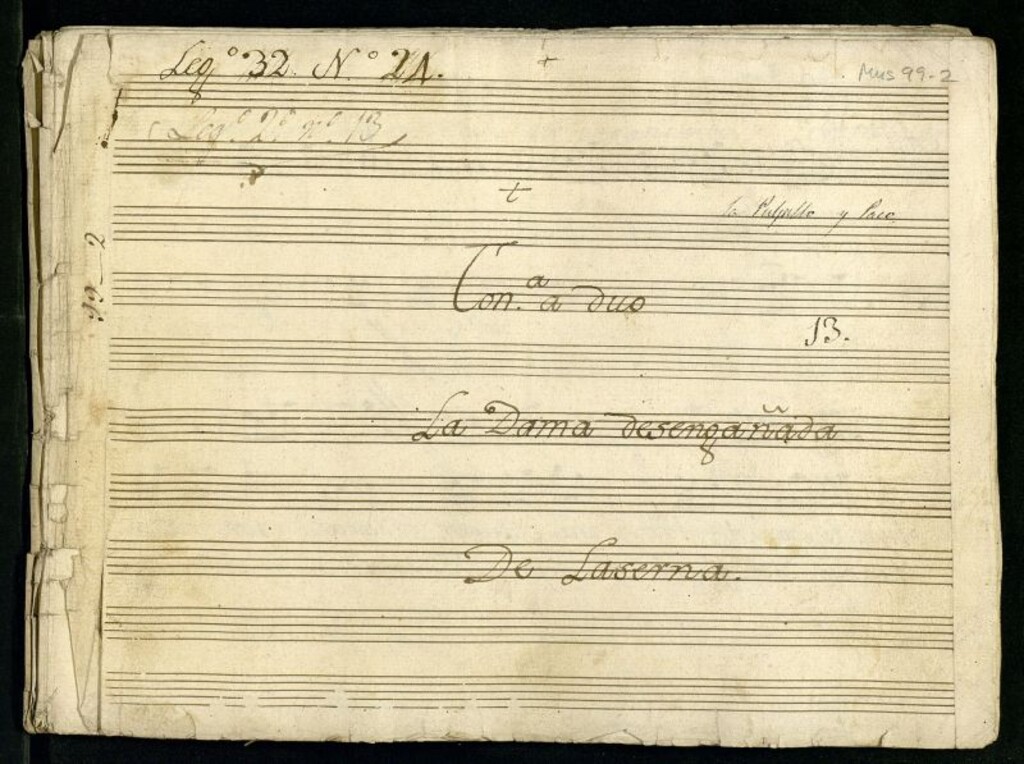 Leg.º 32. N.º 24.
Mus 99-2
Leg.º 2º nº. 13
la Pulpillo y Paco
99-2
Ton.ª a duo
13.
La Dama desengañada
De Laserna.